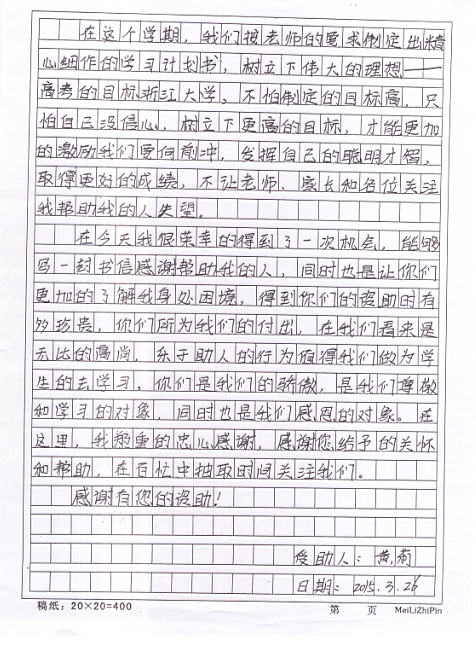 在这个学期，我们按老师的要求制定出精
心细作的学习计划书，树立下伟大的理想——
高考的目标浙江大学，不怕制定的目标高，只
怕自己没信心，树立下更高的目标，才能更加
的激励我们要向前冲，发挥自己的聪明才智，
取得更好的成绩，不让老师、家长和各位关注
我帮助我的人失望。
在今天我很荣幸的得到了一次机会，能够
写一封书信感谢帮助我的人，同时也是让你们
更加的了解我身处困境，得到你们的资助时有
多珍贵，你们所为我们的付出，在我们看来是
无比的高尚，乐于助人的行为值得我们做为学
生的去学习，你们是我们的骄傲，是我们尊敬
和学习的对象，同时也是我们感恩的对象。在
这里，我郑重的忠心感谢，感谢您给予的关怀
和帮助，在百忙中抽取时间关注我们。
感谢有您的资助！
受助人：黄
日期：2015.3.26
稿纸：20×20=400 第 页 MeiLiZhiPin